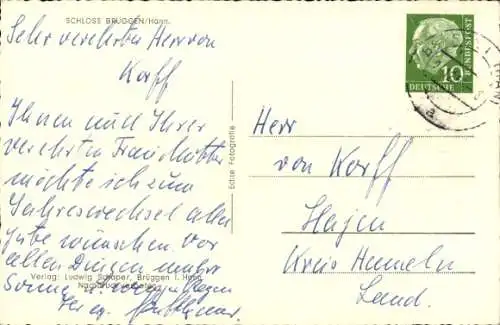 SCHLOSS BRÜGGEN/Hann.
Sehr verehrter Herr von
Korff
Ihnen und Ihrer
verehrten Frau Mutter
möchte ich zum
Jahreswechsel alles
Gute wünschen. Vor
allen Dingen mehr
Sonne u.
Ihr
Verlag: Ludwig Schaper, Brüggen i. Hann.
Echte Fotografie
10
DEUTSCHE
BUNDESPOST
a
Herr
von Korff
Hajen
Kreis Hameln
Land.